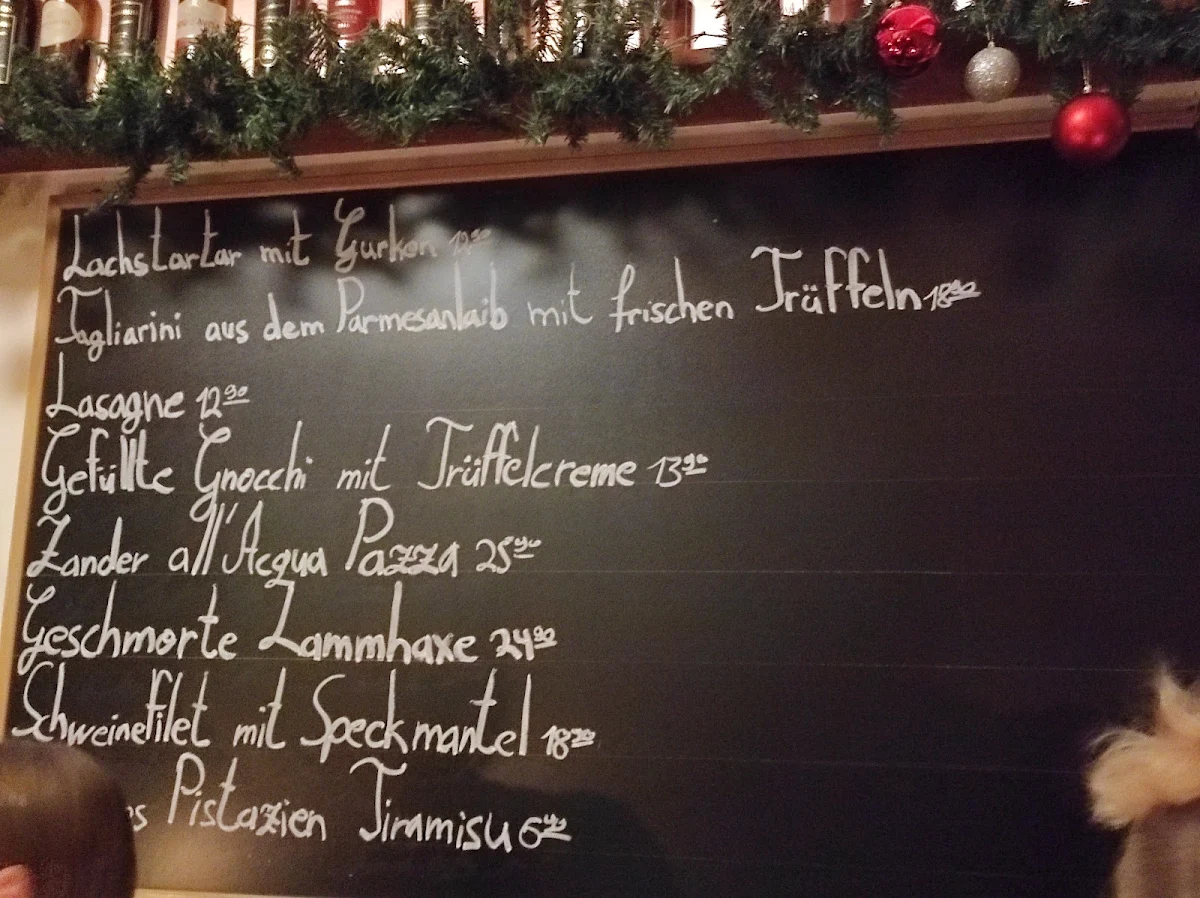 Lachstartar mit Gurken
Tagliarini aus dem Parmesanlaib mit frischen Trüffeln 18⁹⁰
Lasagne 12⁹⁰
Gefüllte Gnocchi mit Trüffelcreme 13⁹⁰
Zander all'Acqua Pazza 25⁹⁰
Geschmorte Lammhaxe 24⁹⁰
Schweinefilet mit Speckmantel 18⁹⁰
Pistazien Tiramisu 6⁹⁰